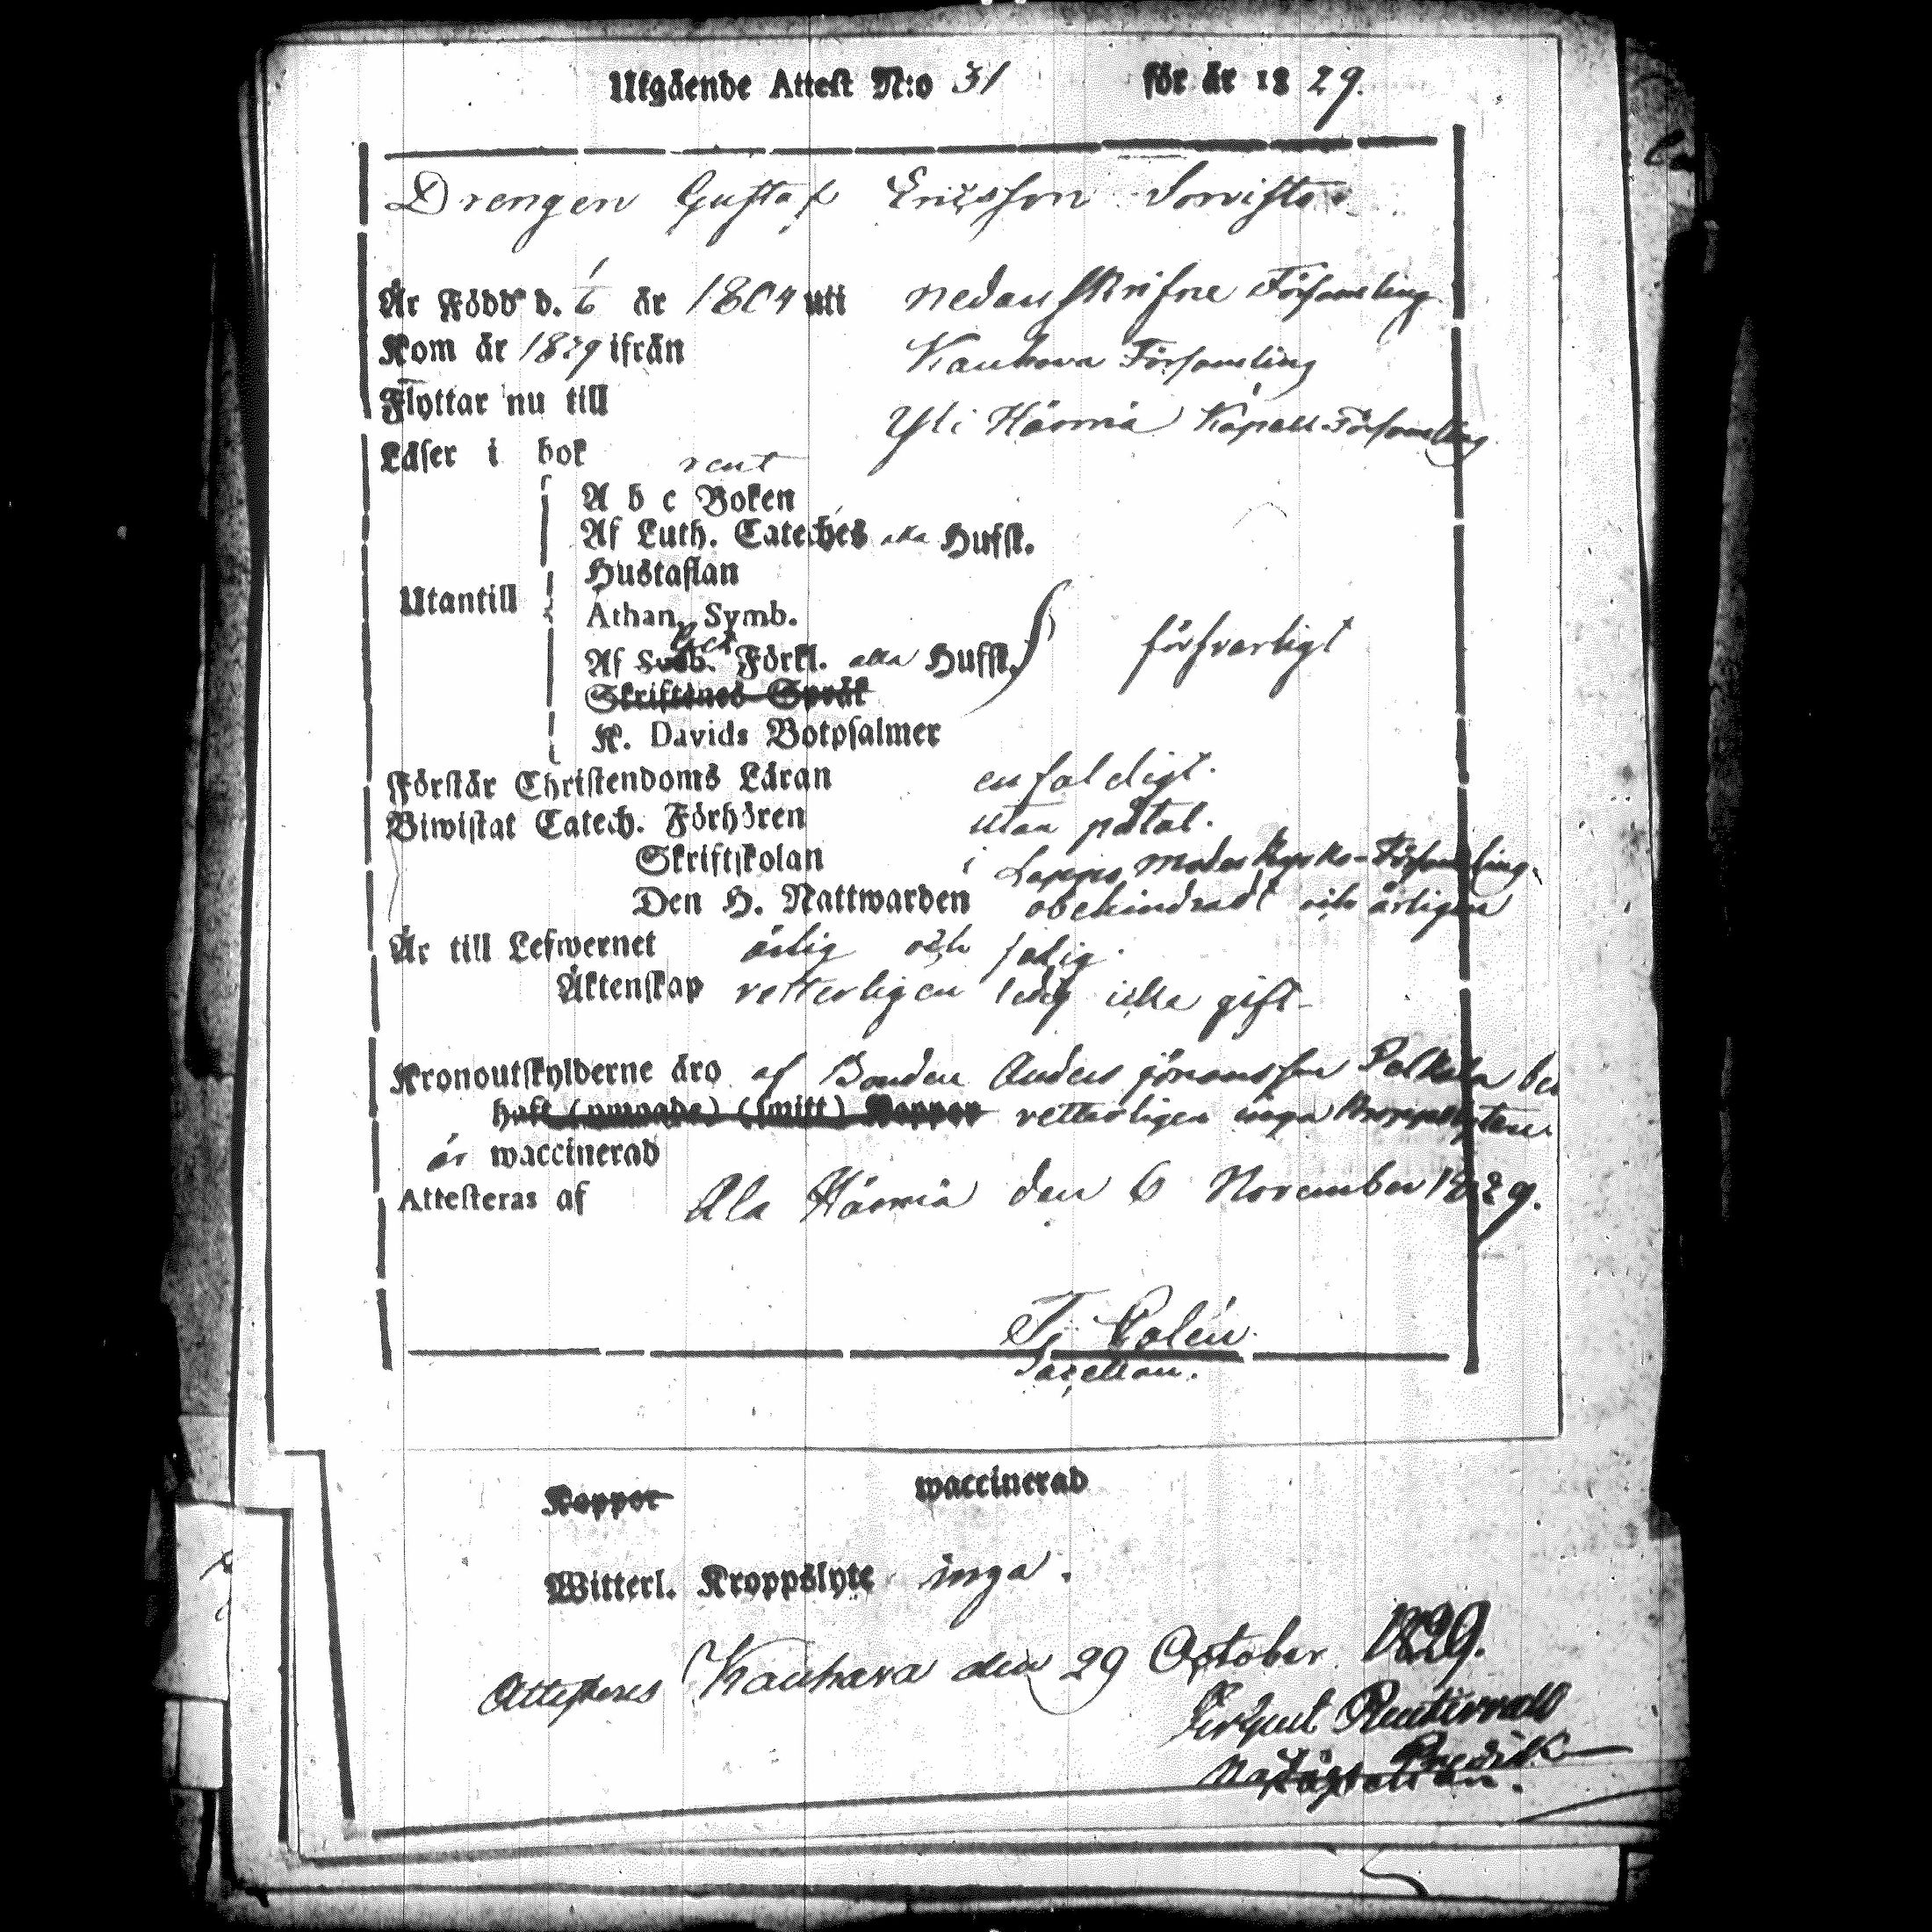 Utgående Attest N:o 31 för år 18 29.
Drengen Gustaf Ericsson
Är Född d. 1/6 år 1804 uti nedanskrifne Församling
Kom år 1829 ifrån Kauhava Församling
Flyttar nu till Yli Härmä Kapell Församling
Läser i bok rent
A b c Boken
Af Luth. Cateches alla Hufst.
Hustaflan
Utantill
Athan. Symb.
Af Förkl. alla Hufst. försvarligt
Skriftenes Språk
K. Davids Botpsalmer
Förstår Christendoms Läran enfaldigt.
Biwistat Catech. Förhören utan påtal.
Skriftskolan i Lappo Moderkyrko-Församling.
Den H. Nattwarden obehindradt och årligen
Är till Lefwernet ärlig och
Äktenskap vetterligen ledig icke gift
Kronoutskylderne äro af Bonden Anders
haft (umgade) (smitt) Koppor vetterligen inga Kroppslyten.
är waccinerad
Attesteras af Ala Härmä den 6 November 1829.
Sacellan.
Koppor waccinerad
Witterl. Kroppslyte inga.
Attesteras Kauhava den 29 October 1829.